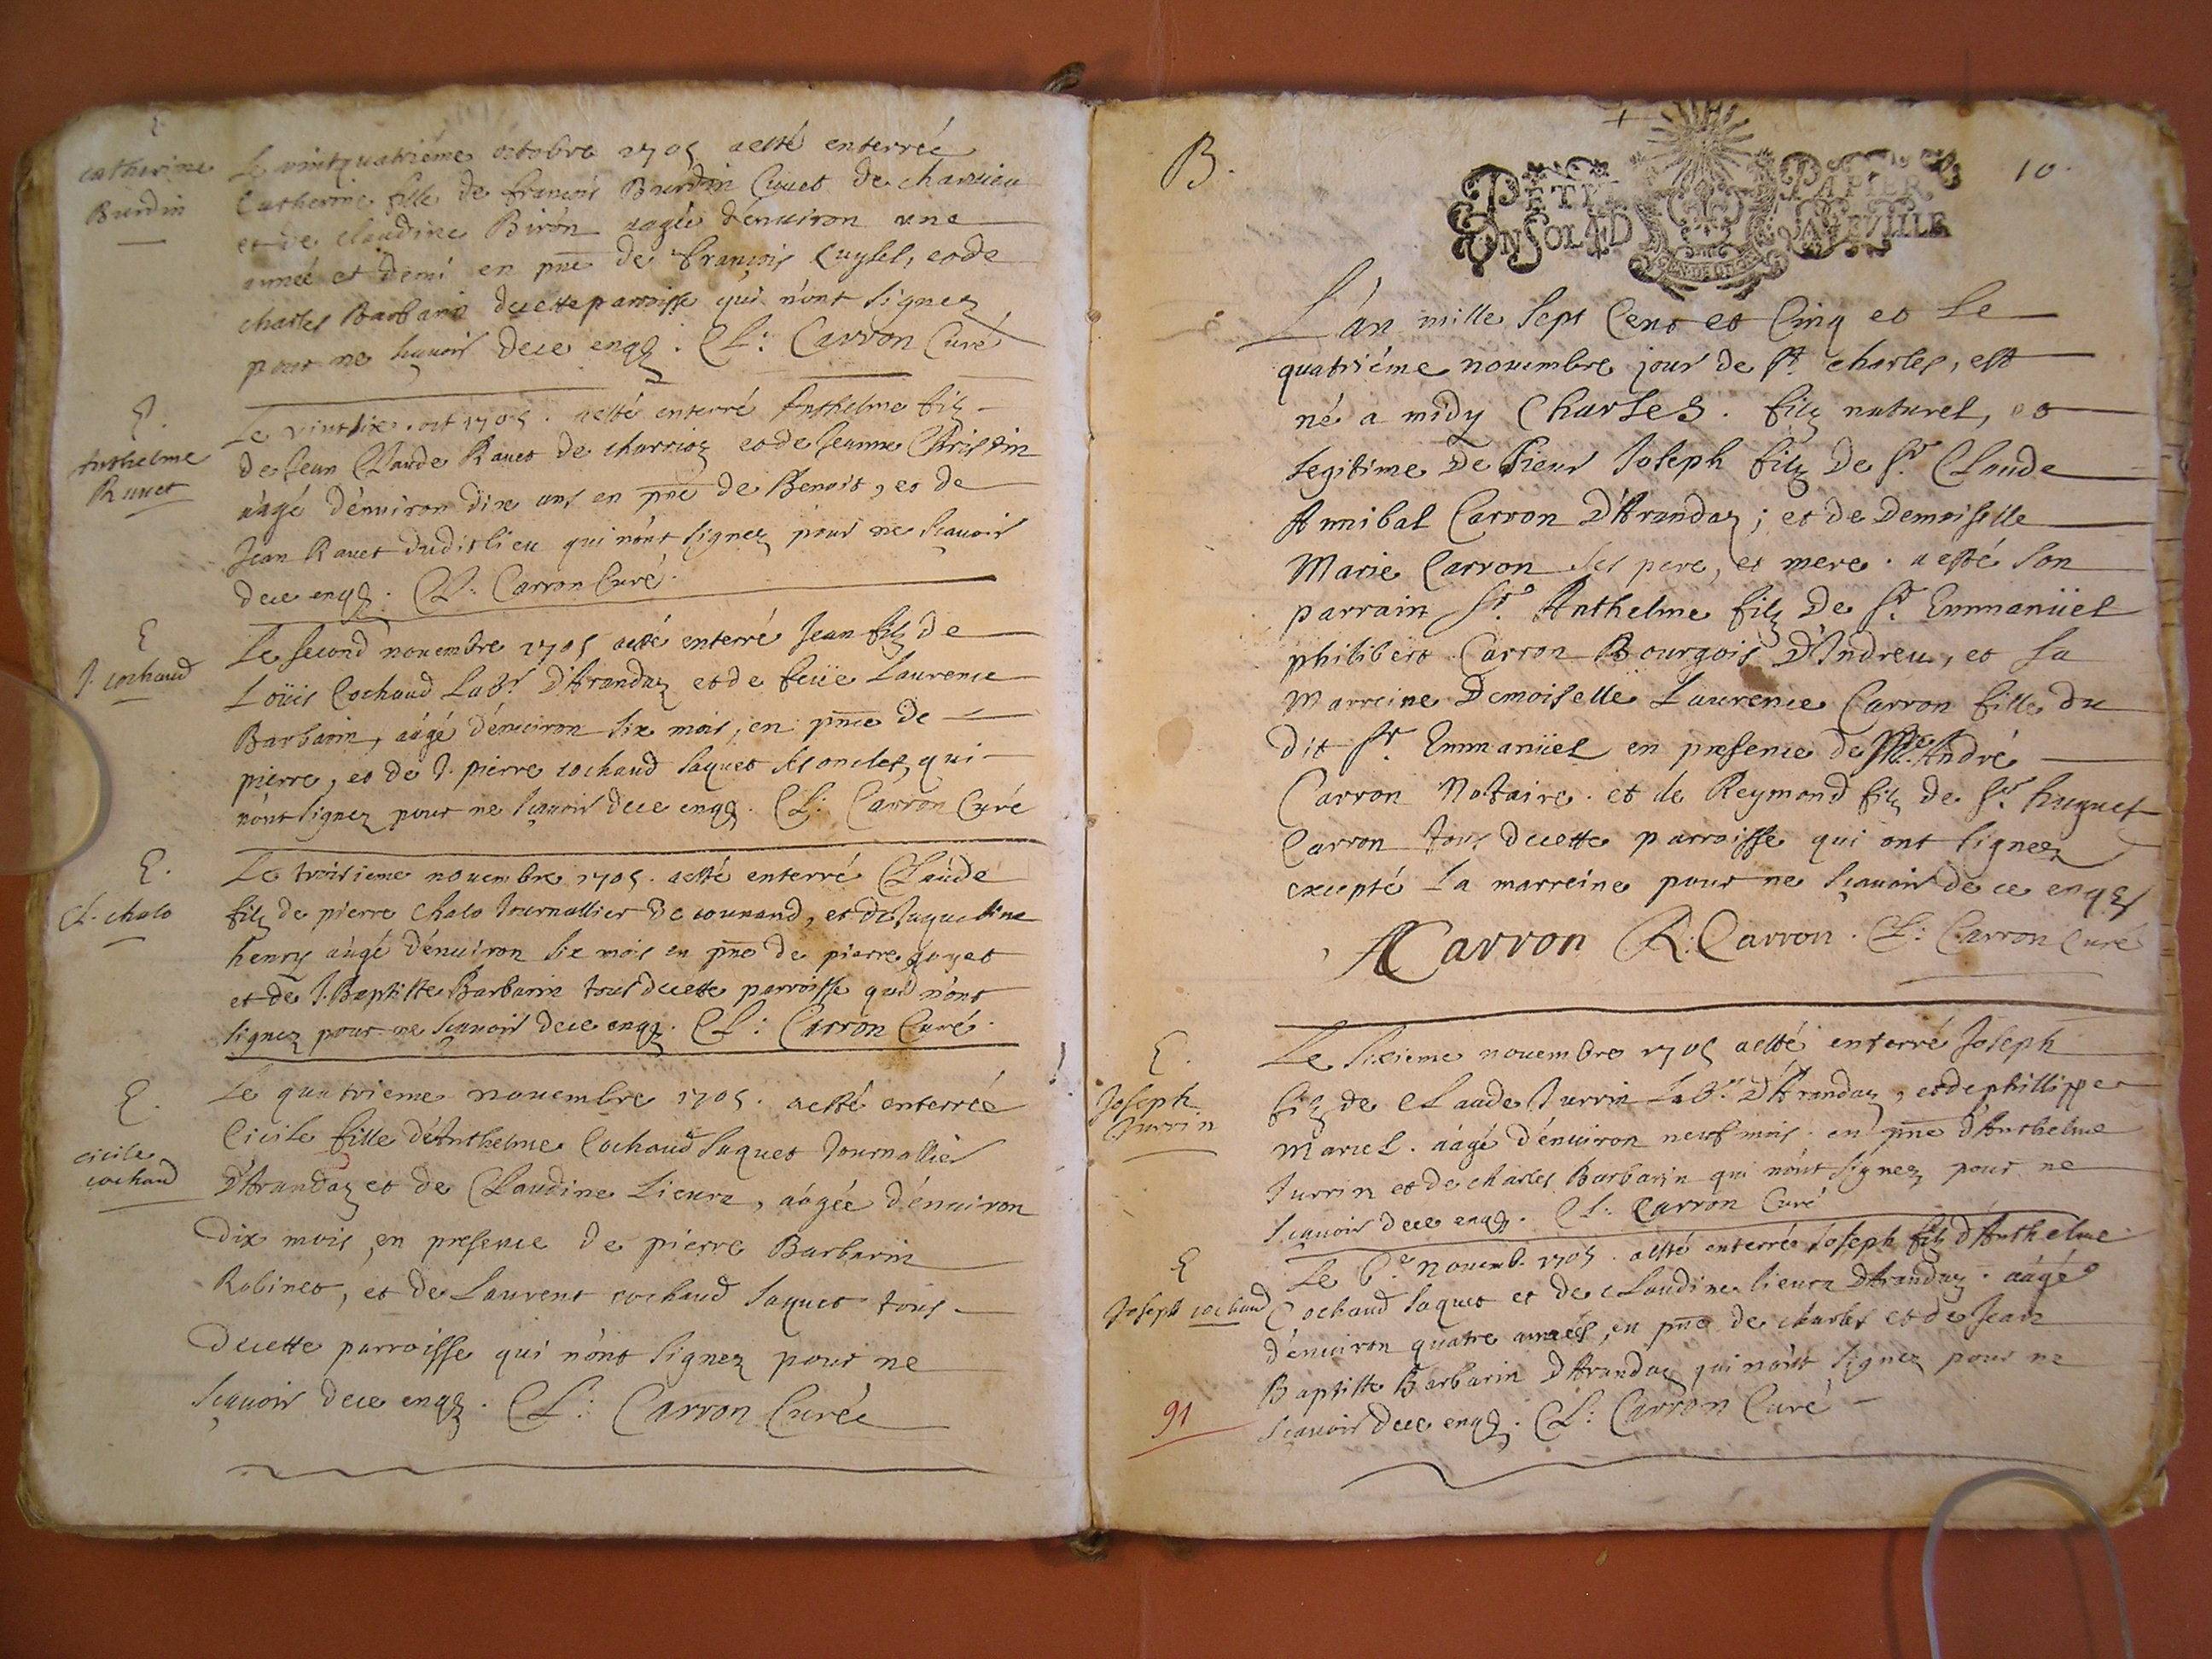 E.
catherine
Burdin
Le vintquatriéme octobre 1705 aesté enterrée
Catherine fille de francois Burdin Cuuet de charvieu
et de claudine Birón aagée d'enuiron une
année et demi en pñe de francois Cuysel, et de
charles Barbarin decetteparroisse qui n'ont signez
pour ne sçauoir dece enqs. Cl: Carron Curé
E.
Anthelme
Rauet
Le vintsix. oct 1705. aesté enterré Anthelme filz
de Jean Claude Rauet de charvioz et de Jeanne Christin
aágé d'enuiron dix ans en pñe de Benoit, et de
Jean Rauet dudit lieu qui n'ont signez pour ne sçauoir
dece enqs. Cl: Carron Curé.
E
J. cochaud
Le second nouembre 1705 aesté enterré Jean filz de
Loüis Cochaud Labr. D'Arandaz et de feüe Laurence
Barbarin, aágé d'enuiron six mois, en pñce de
pierre, et de J. pierre cochaud saquet ses oncles, qui
n'ont signez pour ne sçauoir dece enqs. Cl: Carron Curé
E.
Cl. chalo
Le troisieme nouembre 1705. aesté enterré Claude
filz de pierre chalo Journallier De counand, et de Jaqueline
henry aágé d'enuiron six mois en pñe de pierre goyet
et de J. Baptiste Barbarin tous decette parroisse qui n'ont
signez pour ne sçauoir dece enqs. Cl: Carron Curé.
E.
cicile
cochaud
Le quatrieme nouembre 1705. aesté enterrée
Cicile fille d'Anthelme Cochaud saquet Journallier
D'Arandaz et de Claudine Lieura, aágée d'enuiron
dix mois, en presence de pierre Barbarin
Robinet, et de Laurent cochaud saquet tous
decette parroisse qui n'ont signez pour ne
sçauoir dece enqs. Cl: Carron Curée
B.
10.
PETIT PAPIER
UN SOL 4 D LA FEVILLE
L'an mille sept cent et Cinq et le
quatriéme nouembre jour de st. charles, est
né a midy Charles. filz naturel, et
legitime de sieur Joseph filz de sr. Claude
Annibal Carron D'Arandaz; et de Demoiselle
Marie Carron ses pere, et mere. a esté son
parrain sr. Anthelme filz de sr. Emmanüel
philibert Carron Bourgois D'Indreu, et sa
Marreine Demoiselle Laurence Carron fille du
dit sr. Emmanüel en presence de Me. André
Carron Notaire. et de Reymond filz de sr. huguet
Carron tous decette parroisse qui ont signez
excepté la marreine pour ne sçauoir de ce enqs
A Carron R: Carron. Cl: Carron curé
E.
Joseph
Jurrin
Le sixieme nouembre 1705 aesté enterré Joseph
filz de Claude Jurrin Labr. D'Arandaz, et de phillippe
Marcel. aágé d'enuiron neuf mois. en pñe d'Anthelme
Jurrin et de charles Barbarin qui n'ont signez pour ne
sçauoir dece enqs. Cl: Carron Curé
E
Joseph cochaud
Le 6.e nouemb. 1705. aesté enterré Joseph filz d'Anthelme
Cochaud saquet et de claudine lieura D'Arandaz. aágé
d'enuiron quatre années, en pñe de charles et de Jean
Baptiste Barbarin D'Arandaz qui n'ont signez pour ne
sçauoir dece enqs. Cl: Carron Curé
91